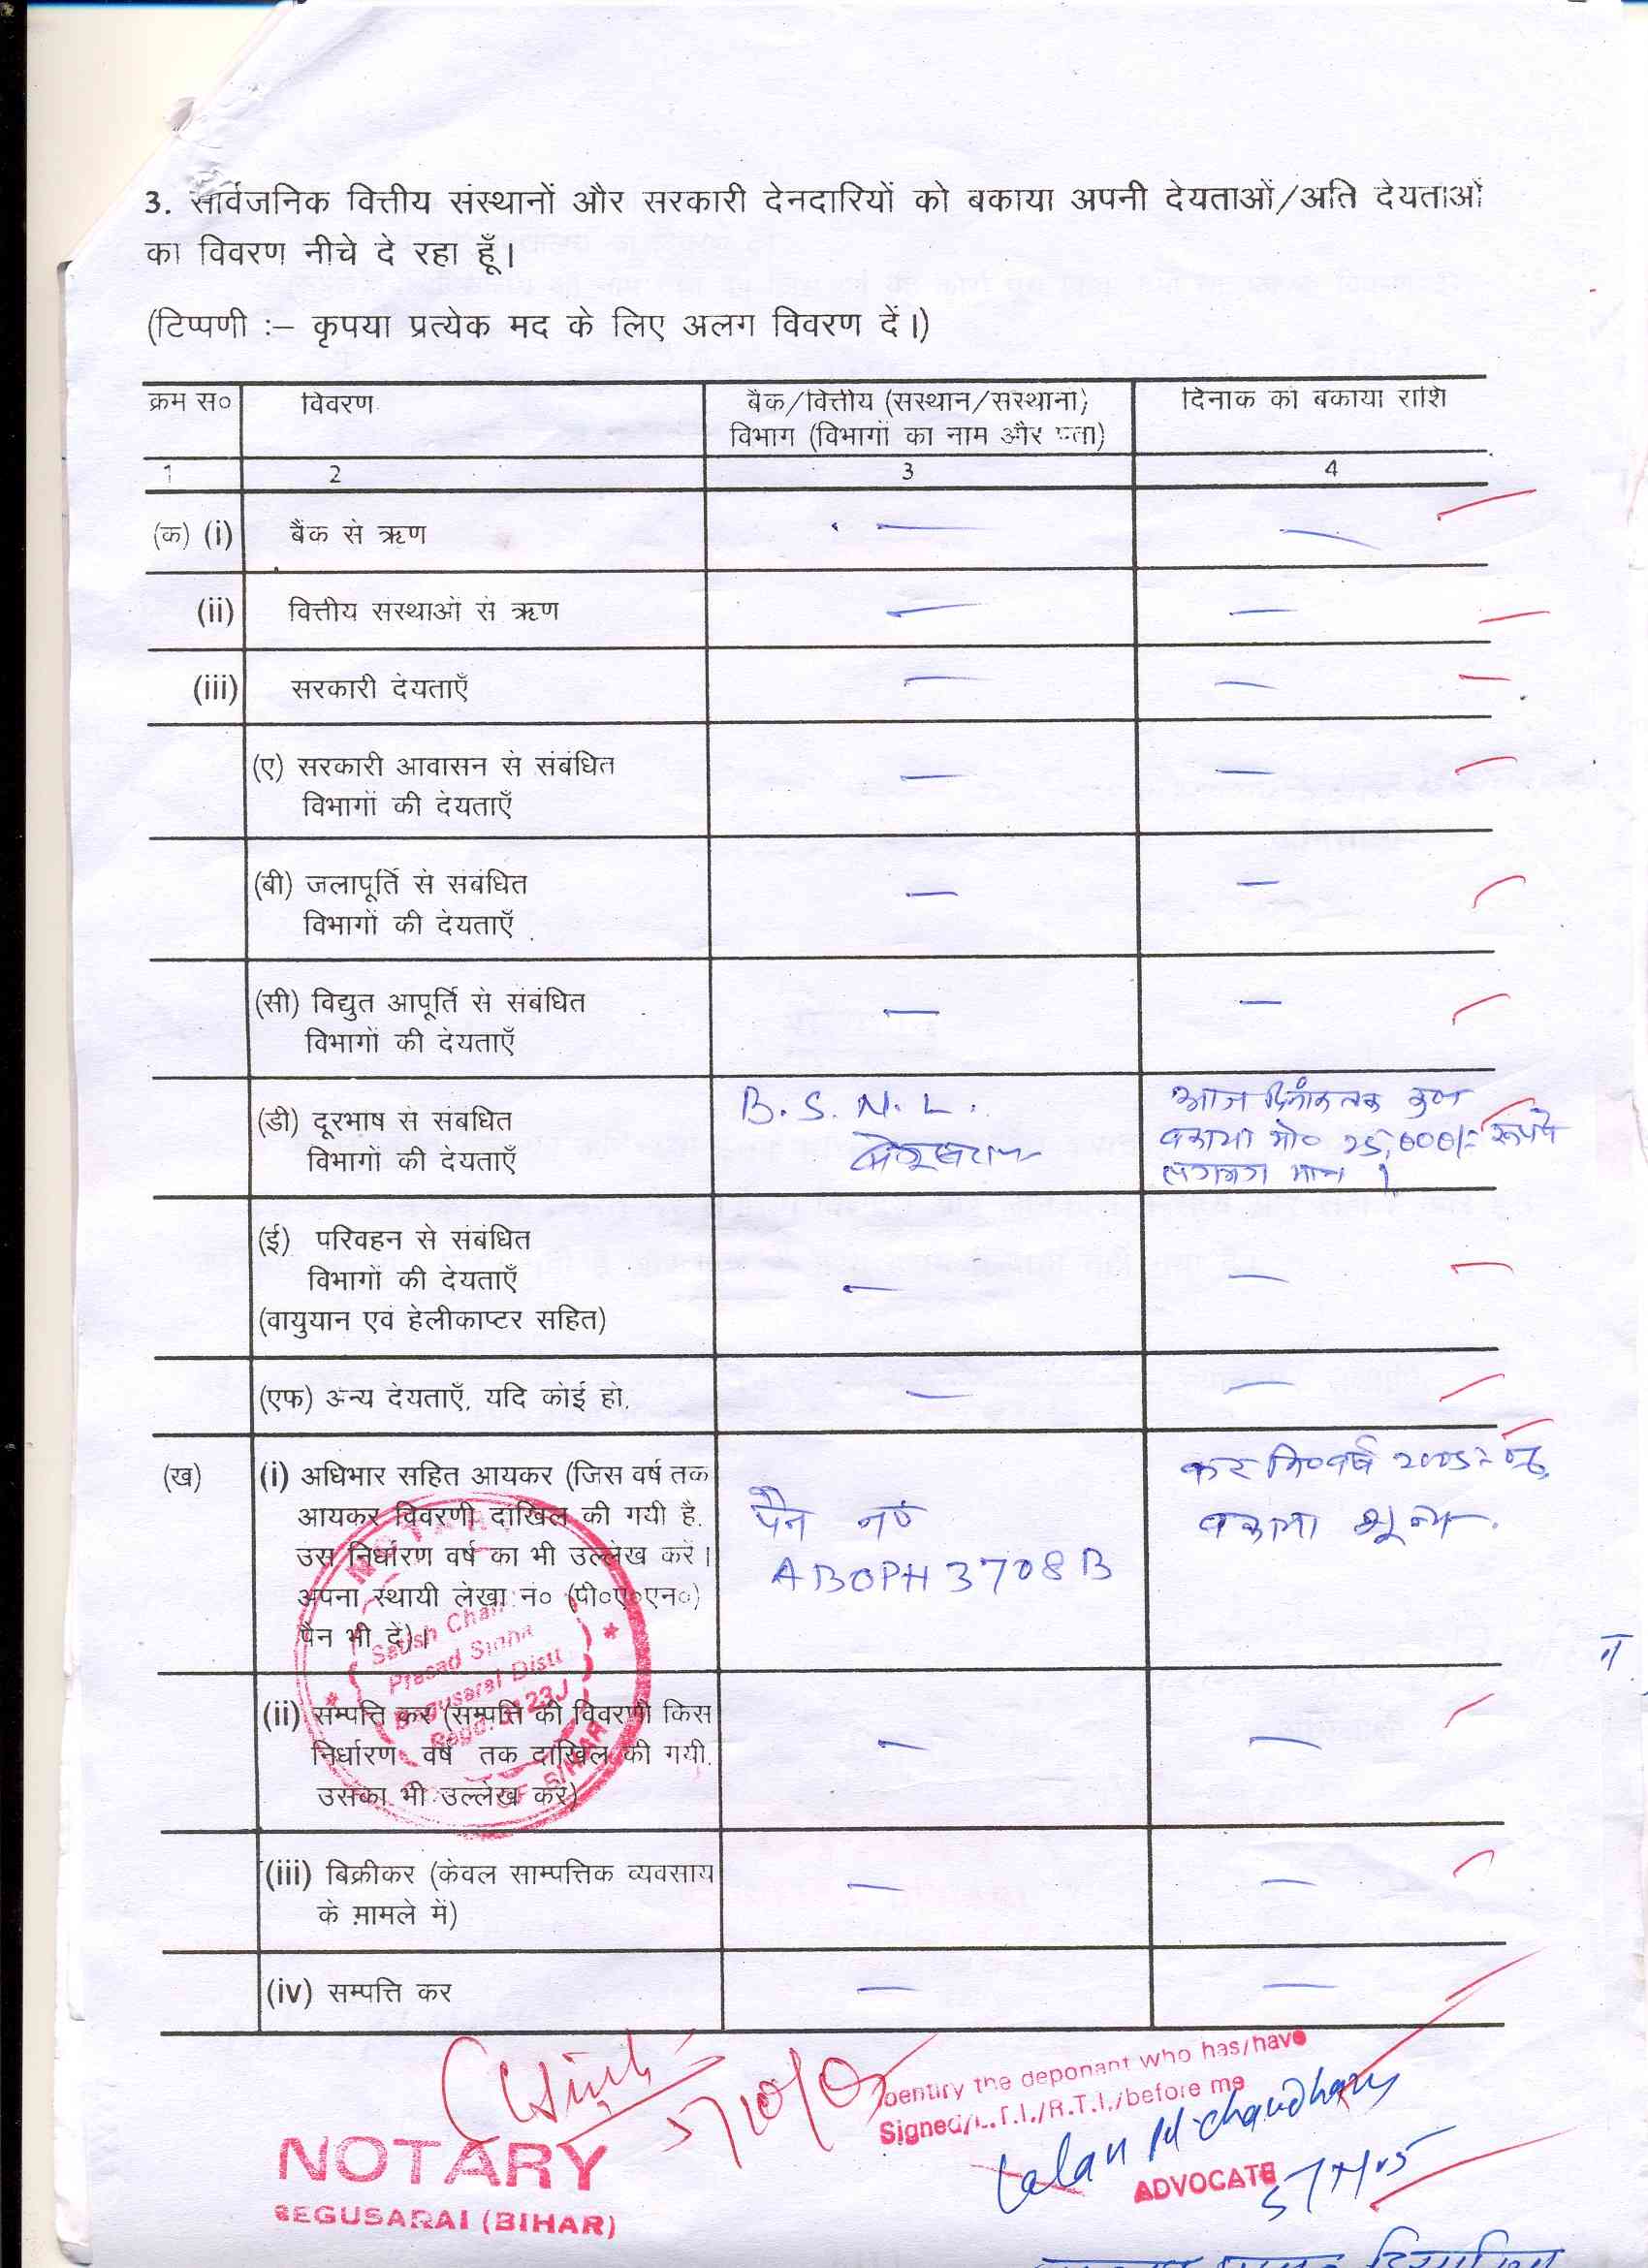 3. सार्वजनिक वित्तीय संस्थानों और सरकारी देनदारियों को बकाया अपनी देयताओं/अति देयताओं
का विवरण नीचे दे रहा हूँ।
(टिप्पणी :– कृपया प्रत्येक मद के लिए अलग विवरण दें।)
क्रम स० विवरण बैंक/वित्तीय (संस्थान/संस्थानों) दिनांक को बकाया राशि
विभाग (विभागों का नाम और पता)
1 2 3 4
(क) (i) बैंक से ऋण — —
(ii) वित्तीय संस्थाओं से ऋण — —
(iii) सरकारी देयताएँ — —
(ए) सरकारी आवासन से संबंधित — —
विभागों की देयताएँ
(बी) जलापूर्ति से संबंधित — —
विभागों की देयताएँ
(सी) विद्युत आपूर्ति से संबंधित — —
विभागों की देयताएँ
(डी) दूरभाष से संबंधित B. S. N. L. आज दिनांक तक कुल
विभागों की देयताएँ बेगूसराय बकाया मो० 25,000/= रूपये
लगभग मात्र।
(ई) परिवहन से संबंधित
विभागों की देयताएँ — —
(वायुयान एवं हेलीकाप्टर सहित)
(एफ) अन्य देयताएँ, यदि कोई हो. — —
(ख) (i) अधिभार सहित आयकर (जिस वर्ष तक कर नि० वर्ष 2005-06
आयकर विवरणी दाखिल की गयी है. पैन नं० बकाया शून्य.
उस निर्धारण वर्ष का भी उल्लेख करें। ABOPH3708B
अपना स्थायी लेखा नं० (पी०ए०एन०)
पैन भी दें)।
(ii) सम्पत्ति कर (सम्पत्ति की विवरणी किस — —
निर्धारण वर्ष तक दाखिल की गयी.
उसका भी उल्लेख करें)
(iii) बिक्रीकर (केवल साम्पत्तिक व्यवसाय — —
के मामले में)
(iv) सम्पत्ति कर — —
NOTARY
Satish Chan
Prasad Sinha
Begusarai Distt
OF BIHAR
5/10/05
Identify the deponant who has/have
Signed/L.T.I./R.T.I./before me
Lalan Chaudhary
ADVOCATE
NOTARY
BEGUSARAI (BIHAR)